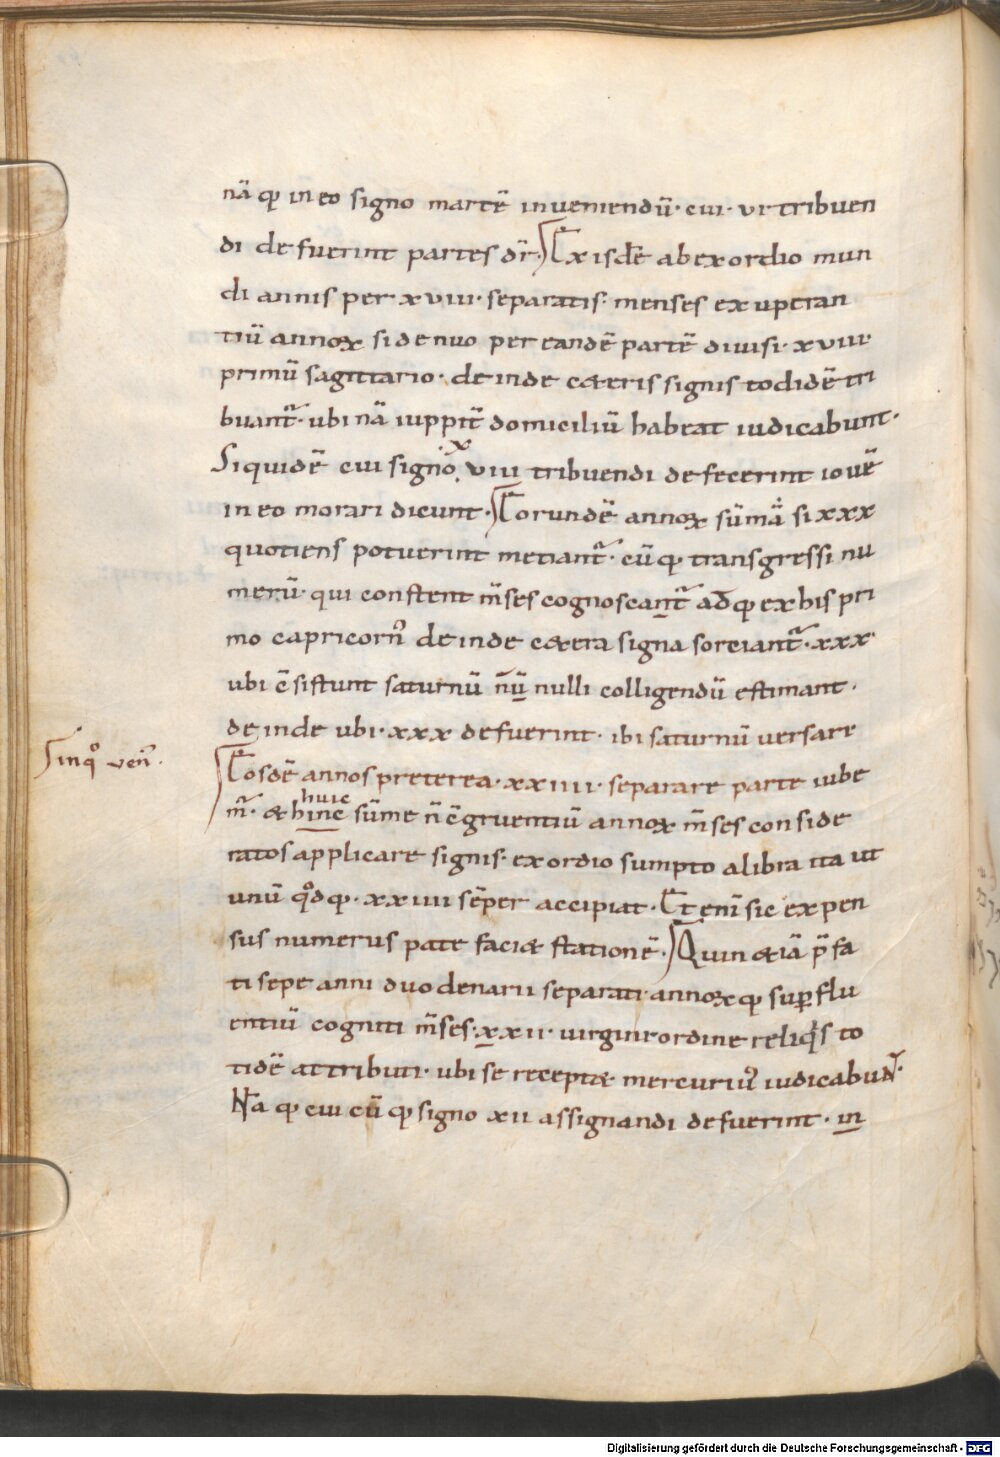 nā qꝫ in eo signo martē inueniendū· cui· ui tribuen
di defuerint partes dr̄· Ex isdē ab exordio mun
di annis per xviii· separatis· menses exuperan
tiū annoꝝ si denuo per eandē partē diuisi· xviii·
primū sagittario· deinde cæteris signis todidē tri
buant᷑· ubi nā iuppit̄ domiciliū habeat iudicabunt·
Siquidē cui signo x viii tribuendi defecerint iouē
in eo morari dicunt· Eorundē annoꝝ sūmā si xxx
quotiens potuerint metiant᷑· cūqꝫ transgressi nu
merū· qui constent m̄ses cognoscant᷑ adqꝫ ex his pri
mo capricorn̄ deinde cætera signa sorciant᷑· xxx·
ubi c̄sistunt saturnū n̄ū nulli colligendū estimant·
deinde ubi· xxx defuerint· ibi saturnū uersare
Sinqͦ uen̄·
Eosdē annos preterea· xxiiii· separare parte iube
huic
m᷑· & hinc sūme n̄ c̄gruentiū annoꝝ m̄ses conside
ratos applicare signis· exordio sumpto a libra ita ut
unū qͦdqꝫ· xxiiii sēper accipiat· Et enī sic expen
sus numerus pate faciæ stationē· Quin & iā p̄fa
ti sepe anni duodenarii separati annoꝝqꝫ suꝑflu
entiū cogniti m̄ses· xxii· uirgini ordine reliqͥs to
tidē attributi· ubi se receptæ mercuriꝰ iudicabuN᷑·
Na qꝫ cui cūqꝫ signo xii assignandi defuerint· in
Digitalisierung gefördert durch die Deutsche Forschungsgemeinschaft - DFG